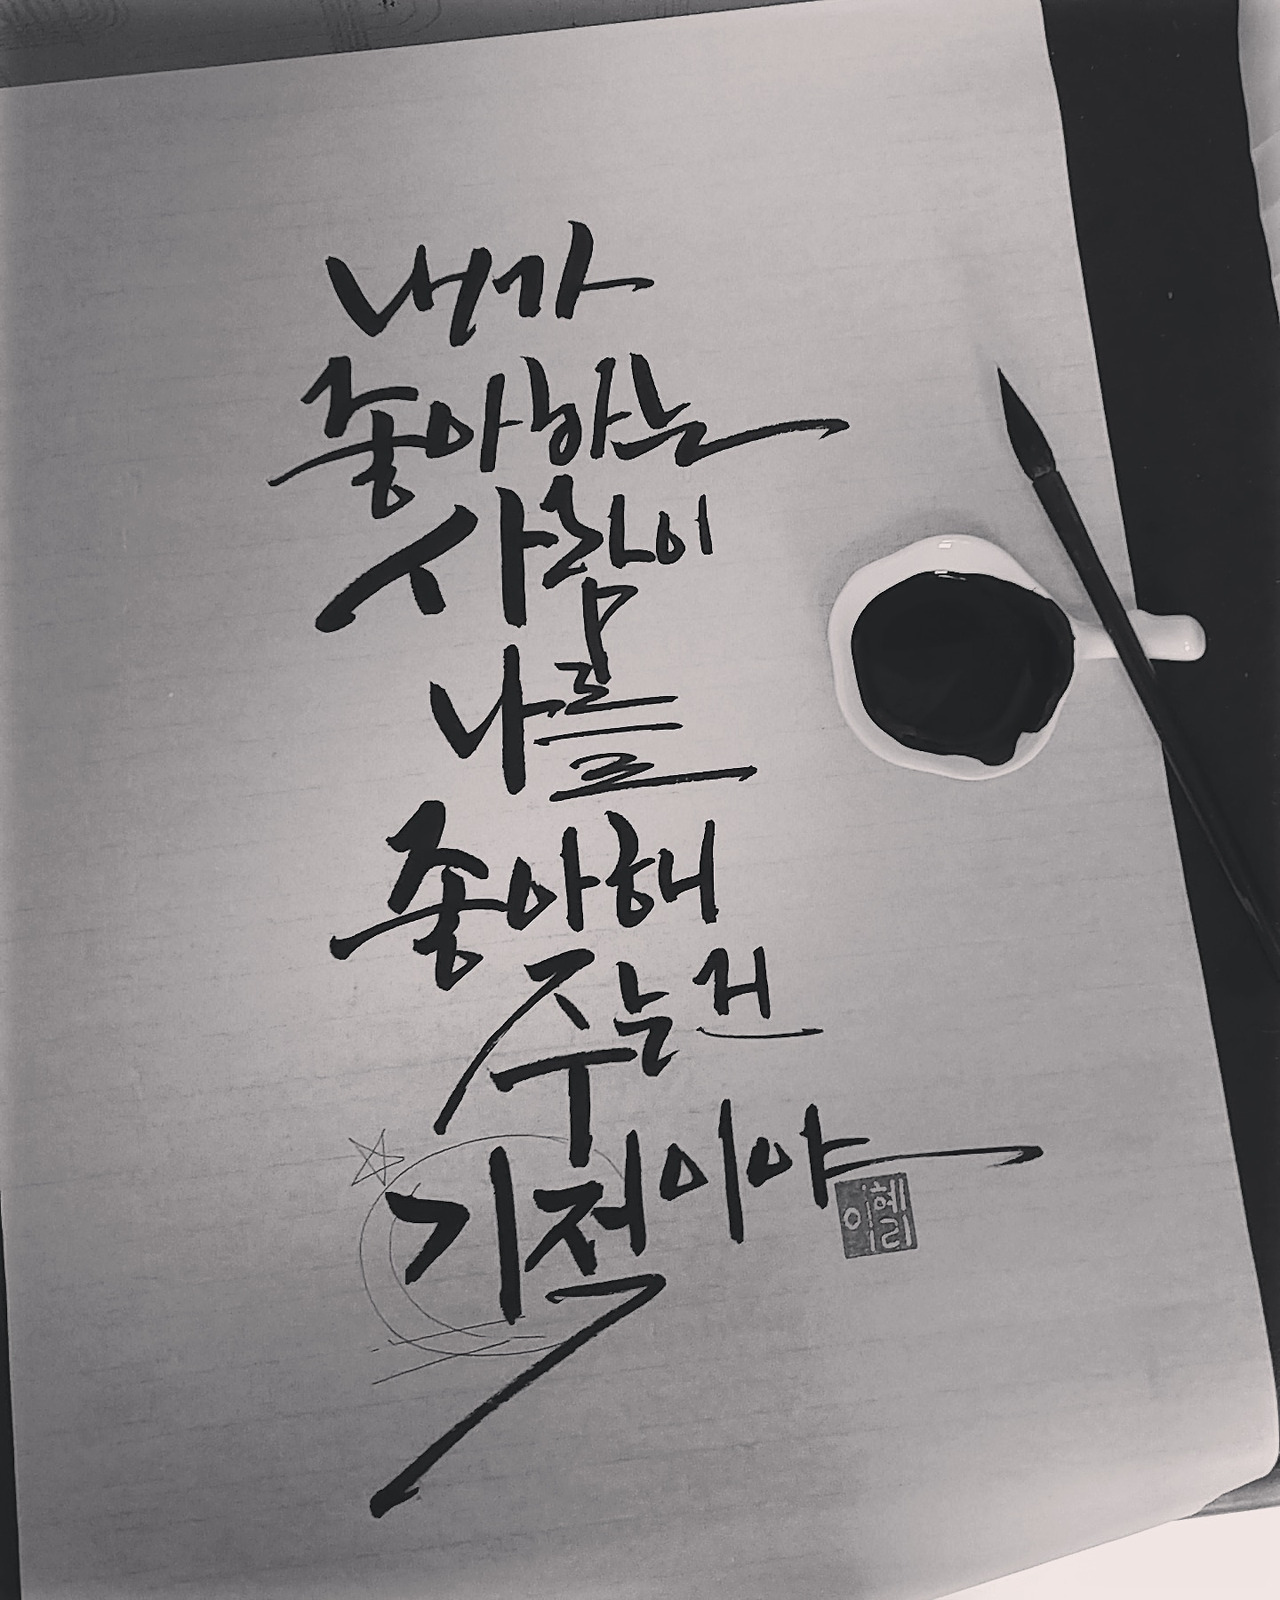 내가
좋아하는
사람이
나를
좋아해
주는 건
기적이야
이혜리